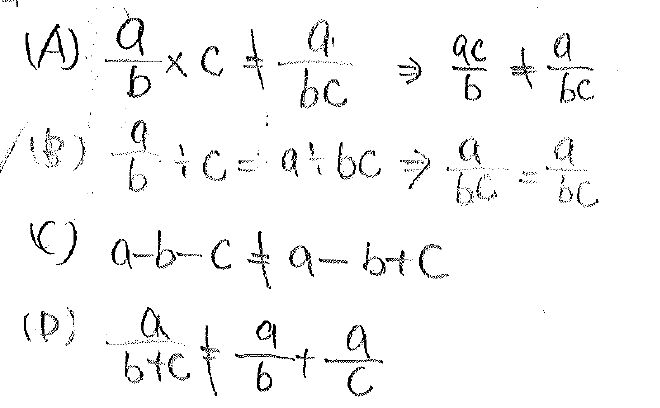 (A) a/b × c ≠ a/bc ⇒ ac/b ≠ a/bc
(B) a/b ÷ c = a ÷ bc ⇒ a/bc = a/bc
(C) a-b-c ≠ a-b+c
(D) a/b+c ≠ a/b + a/c